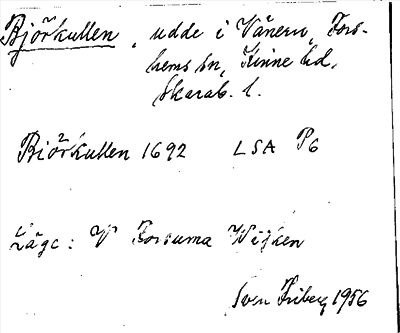 Björkullen, udde i Vänern, Fors-
hems sn, Kinne hd,
Skarab. l.
Biörkullen 1692 LSA P6
Läge: V Forsuma Wijken
Sven Friberg 1956